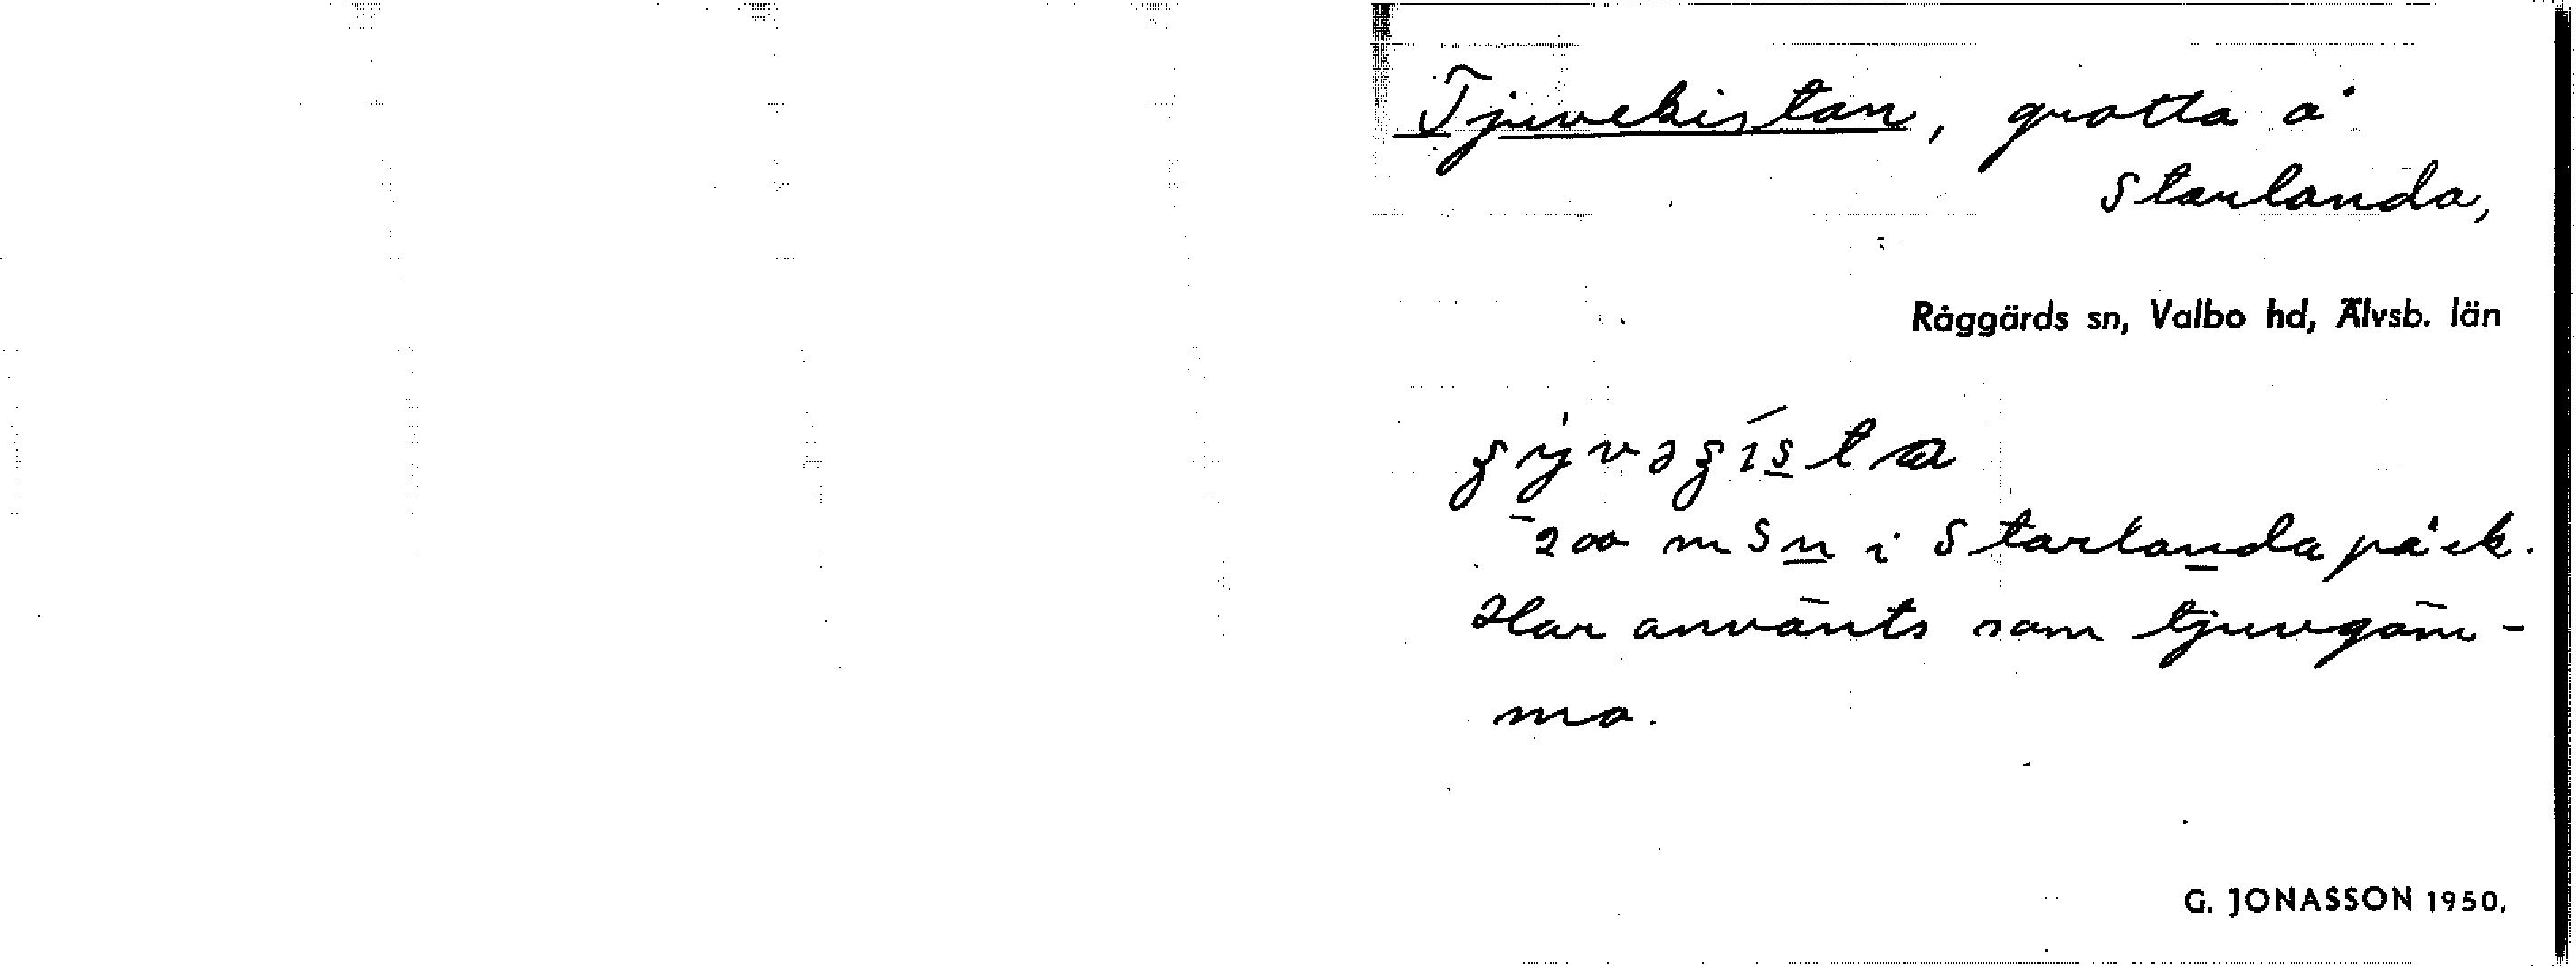 Tjuvekistan, grotta å
Starlanda,
Råggärds sn, Valbo hd, Älvsb. län
200 m S n i Starlanda på ek.
Har använts som tjuvgöm-
ma.
G. JONASSON 1950.